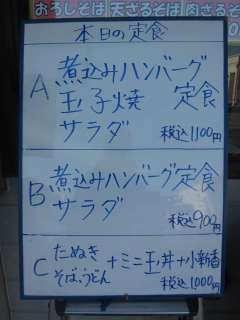 おろしそば 天ざるそば 肉ざるそば
本日の定食
A 煮込みハンバーグ
玉子焼 定食
サラダ 税込1100円
B 煮込みハンバーグ定食
サラダ
税込900円
C たぬき
そば、うどん +ミニ玉丼+小新香
税込1,000円